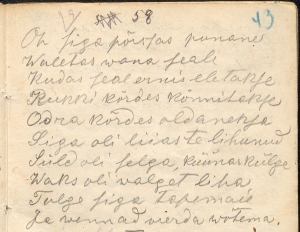 58 43
Oh siga põrsas punane
Waletas wana seale
Kudas seal ernis eletakse
Rukki kõrdes kõnnitakse
Odra kõrdes oldanekse
Siga oli liiaste lihunud
Süld oli selga, küünar külge
Waks oli walget liha
Tulge siga tapemaie
Ja wennad vierda wotema.